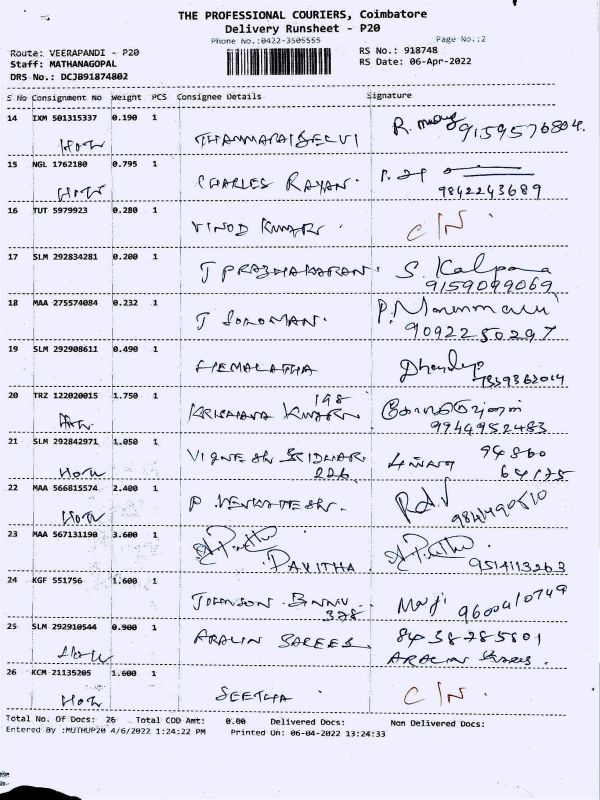 THE PROFESSIONAL COURIERS, Coimbatore
Delivery Runsheet - P20
Phone No.:0422-3505555 Page No.:2
Route: VEERAPANDI - P20 RS No.: 918748
Staff: MATHANAGOPAL RS Date: 06-Apr-2022
DRS No.: DCJB91874802
S No Consignment No Weight PCS Consignee Details Signature
14 IXM 501315337 0.190 1
R. 9159576804.
15 NGL 1762180 0.795 1
CHARLES RAYAN.
9842243689
16 TUT 5979923 0.280 1
VINOD KUMAR. C/N.
17 SLM 292834281 0.200 1
T PRABHAKARAN. S. Kalpana
9159099069
18 MAA 275574084 0.232 1
T SOLOMAN. P.
9092250297
19 SLM 292908611 0.490 1
HEMALATHA
7339362014
20 TRZ 122020015 1.750 1 198
KRISHNA KUMAR
9944952483
21 SLM 292842971 1.050 1
94860
226 64175
22 MAA 566815574 2.400 1
P VENKATESH.
23 MAA 567131190 3.600 1
PAVITHA 9514113263
24 KGF 551756 1.600 1
JOHNSON 9600410749
378
25 SLM 292910544 0.900 1
ARALIN SAREES 8438785801
ARALIN
26 KCM 21135205 1.600 1
SEETHA C/N.
Total No. Of Docs: 26 Total COD Amt: 0.00 Delivered Docs: Non Delivered Docs:
Entered By :MUTHUP20 4/6/2022 1:24:22 PM Printed On: 06-04-2022 13:24:33